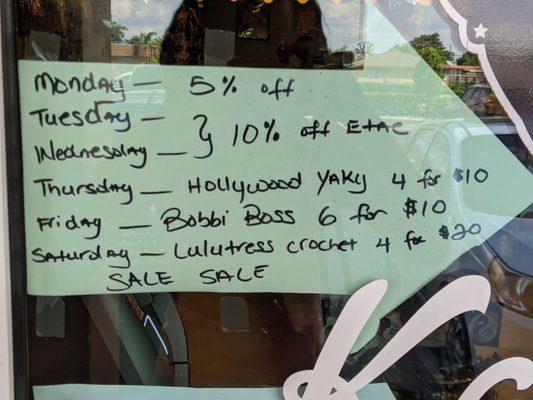 Monday — 5% off
Tuesday —
Wednesday — } 10% off Etae
Thursday — Hollywood Yaky 4 for $10
Friday — Bobbi Boss 6 for $10
Saturday — Lulutress crochet 4 for $20
SALE SALE